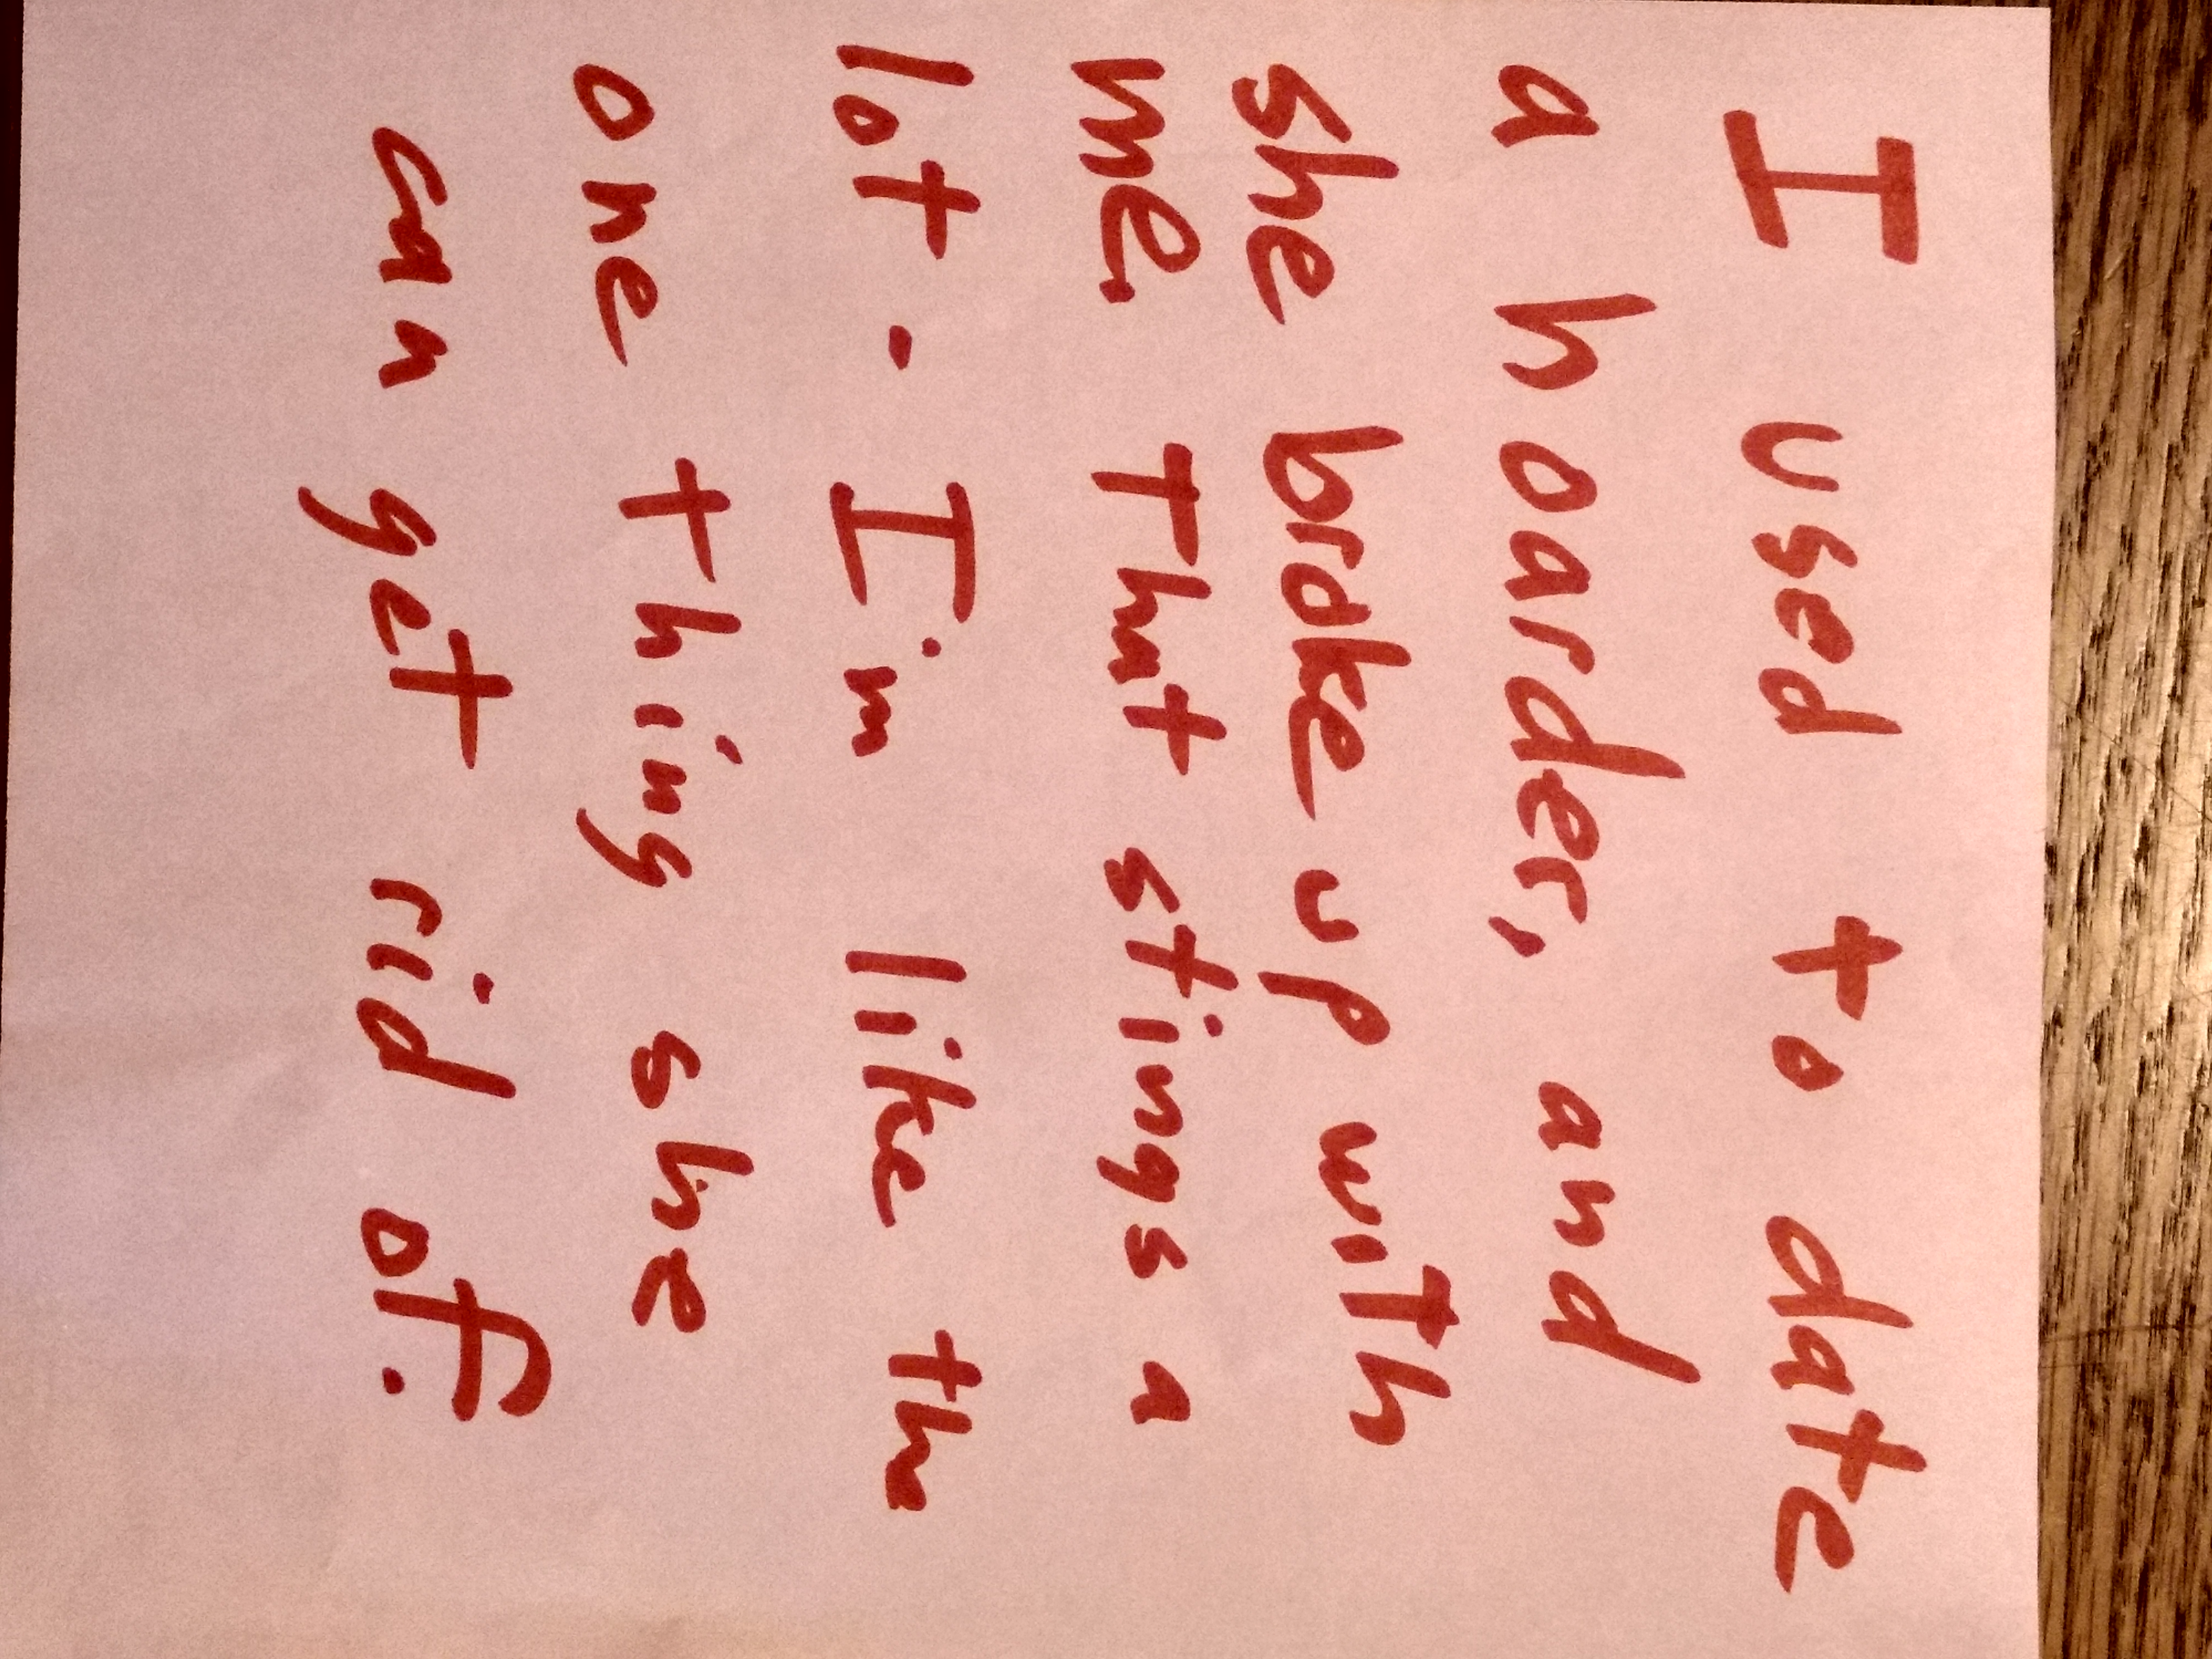 I used to date
a hoarder, and
she broke up with
me. That stings a
lot. I'm like the
one thing she
can get rid of.